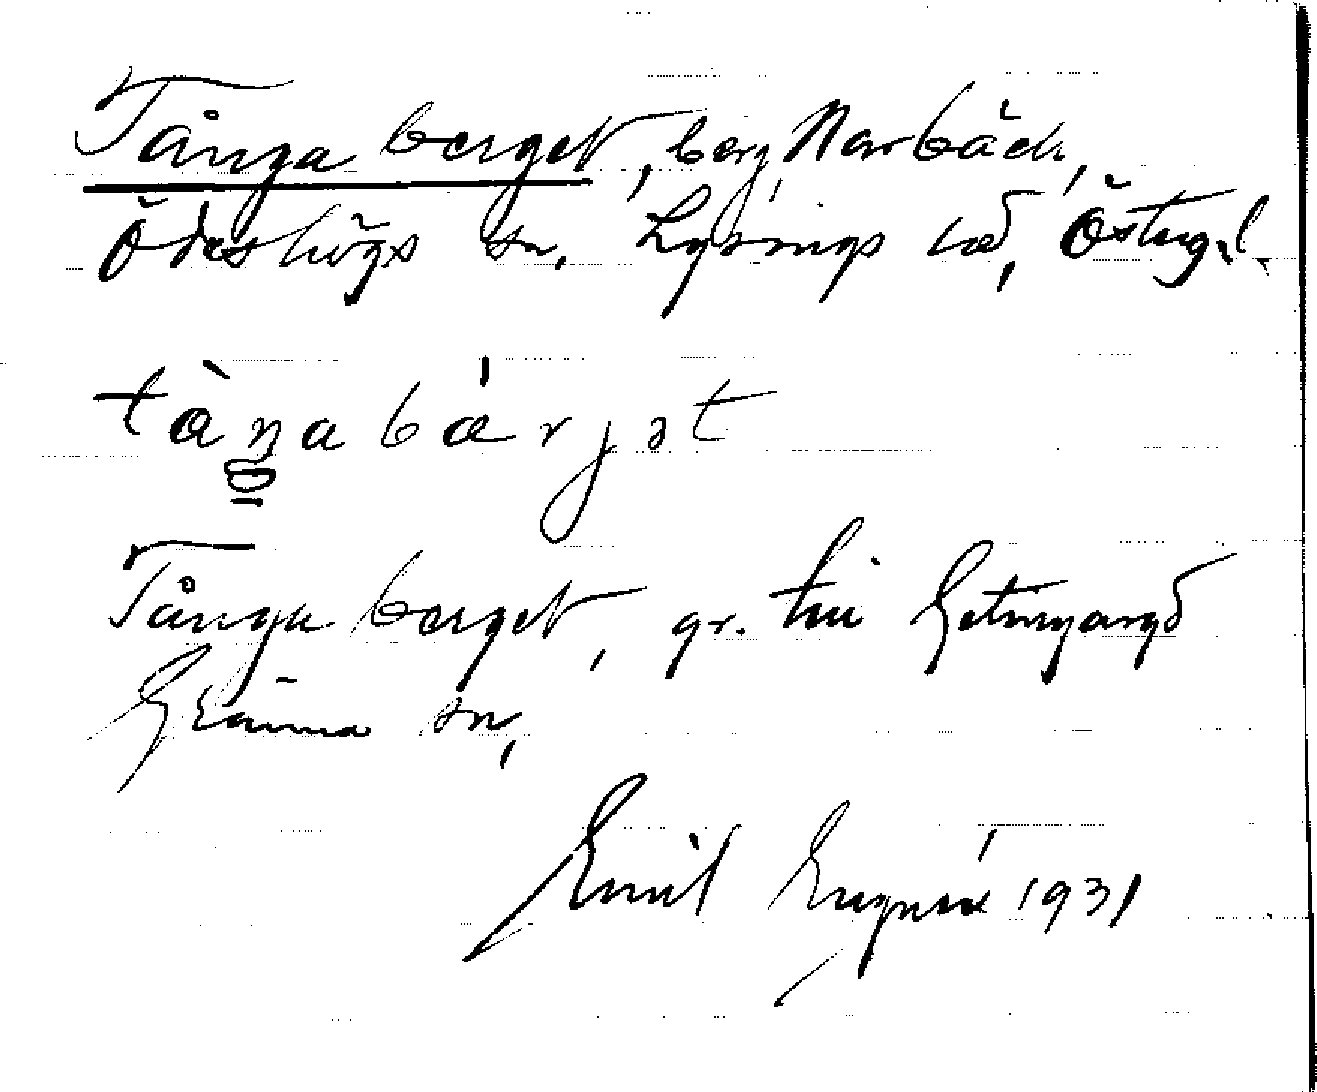 Tånga berget, berg Narbäck,
Ödeshögs sn. Lysings hd, Östergl.
tàŋabárjət
Tånga berget, gr. till Getingaryd
Gränna sn,
Emil 1931